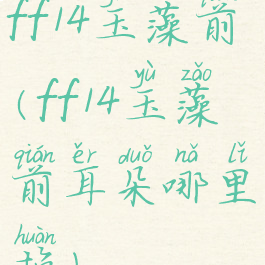 ff14玉藻前
(ff14玉藻
yù zǎo
前耳朵哪里
qián ěr duǒ nǎ lǐ
huàn